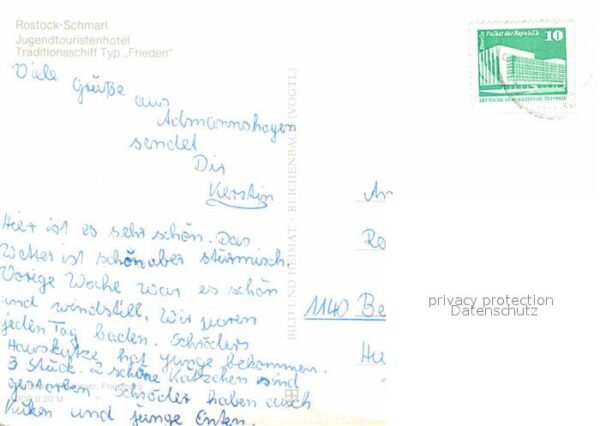 Rostock-Schmarl
Jugendtouristenhotel
Traditionsschiff Typ „Frieden"
Viele Grüße aus
Admannshagen
sendet
Dir
Kerstin
Hier ist es sehr schön. Das
Wetter ist schön aber stürmisch.
Vorige Woche war es schön
und windstill. Wir waren
jeden Tag baden. Schröders
Hauskatze hat junge bekommen.
3 Stück. 2 schöne Kätzchen sind
gestorben. Schröder haben auch
Küken und junge Enten.
BILD UND HEIMAT · REICHENBACH (VOGTL)
Berlin Palast der Republik
10
DEUTSCHE DEMOKRATISCHE REPUBLIK
An
1140 Be
privacy protection
Datenschutz